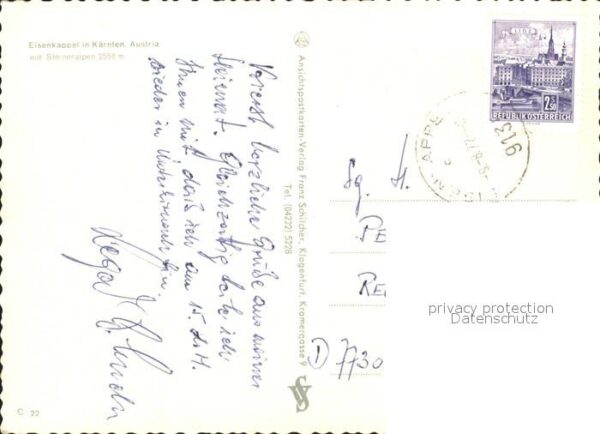 Eisenkappel in Kärnten, Austria
mit Steineralpen 2558 m
Vorerst herzliche Grüße aus meiner
Heimat. Gleichzeitig teile ich
Ihnen mit daß ich am 15. d. M.
wieder in
bin.
C 22
Ansichtspostkarten-Verlag Franz Schilcher, Klagenfurt, Kramergasse 9
Tel. (04222) 5228
2.50
REPUBLIK ÖSTERREICH
913
Sg. H.
PE
RE
D 7730
privacy protection
Datenschutz